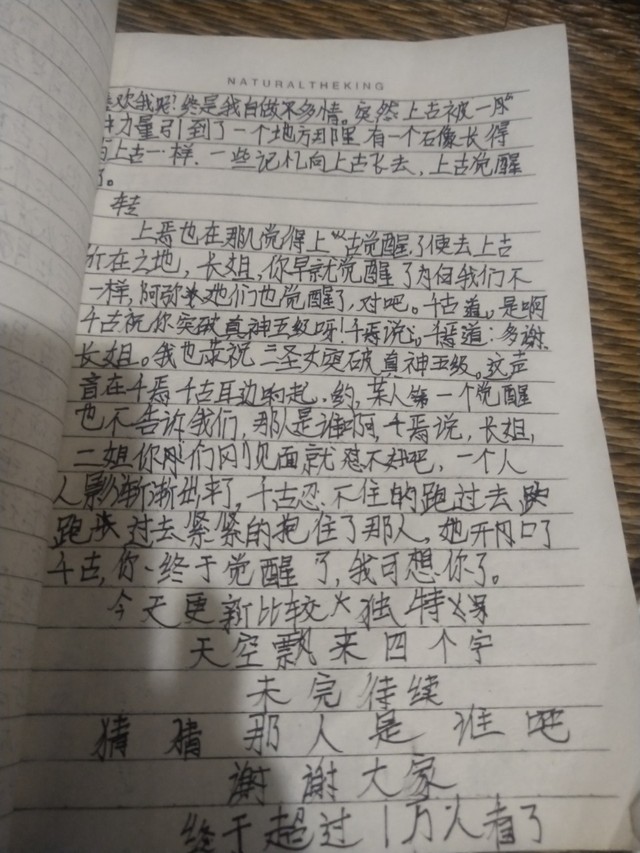 NATURALTHEKING
欢我呢!终是我自做不多情。突然上古被一股
力量引到了一个地方那里有一个石像长得
上古一样.一些记忆向上古飞去,上古觉醒
了。
转
上焉也在那儿觉得上古觉醒了便去上古
所在之地,长姐,你早就觉醒了为何我们不
一样,阿弥她们也觉醒了,对吧。千古道。是啊
千古祝你突破真神五级呀!千焉说。千焉道:多谢
长姐。我也恭祝三圣女突破真神五级。这声
音在千焉千古耳边响起.哟,某人第一个觉醒
也不告诉我们,那人是谁啊,千焉说,长姐,
二姐你们刚见面就怼不好吧,一个人
人影渐渐出来了,千古忍不住的跑过去
跑过去紧紧的抱住了那人,她开口了
千古,你终于觉醒了,我可想你了。
今天更新比较独特
天空飘来四个字
未完待续
猜猜那人是谁吧
谢谢大家
终于超过1万人看了